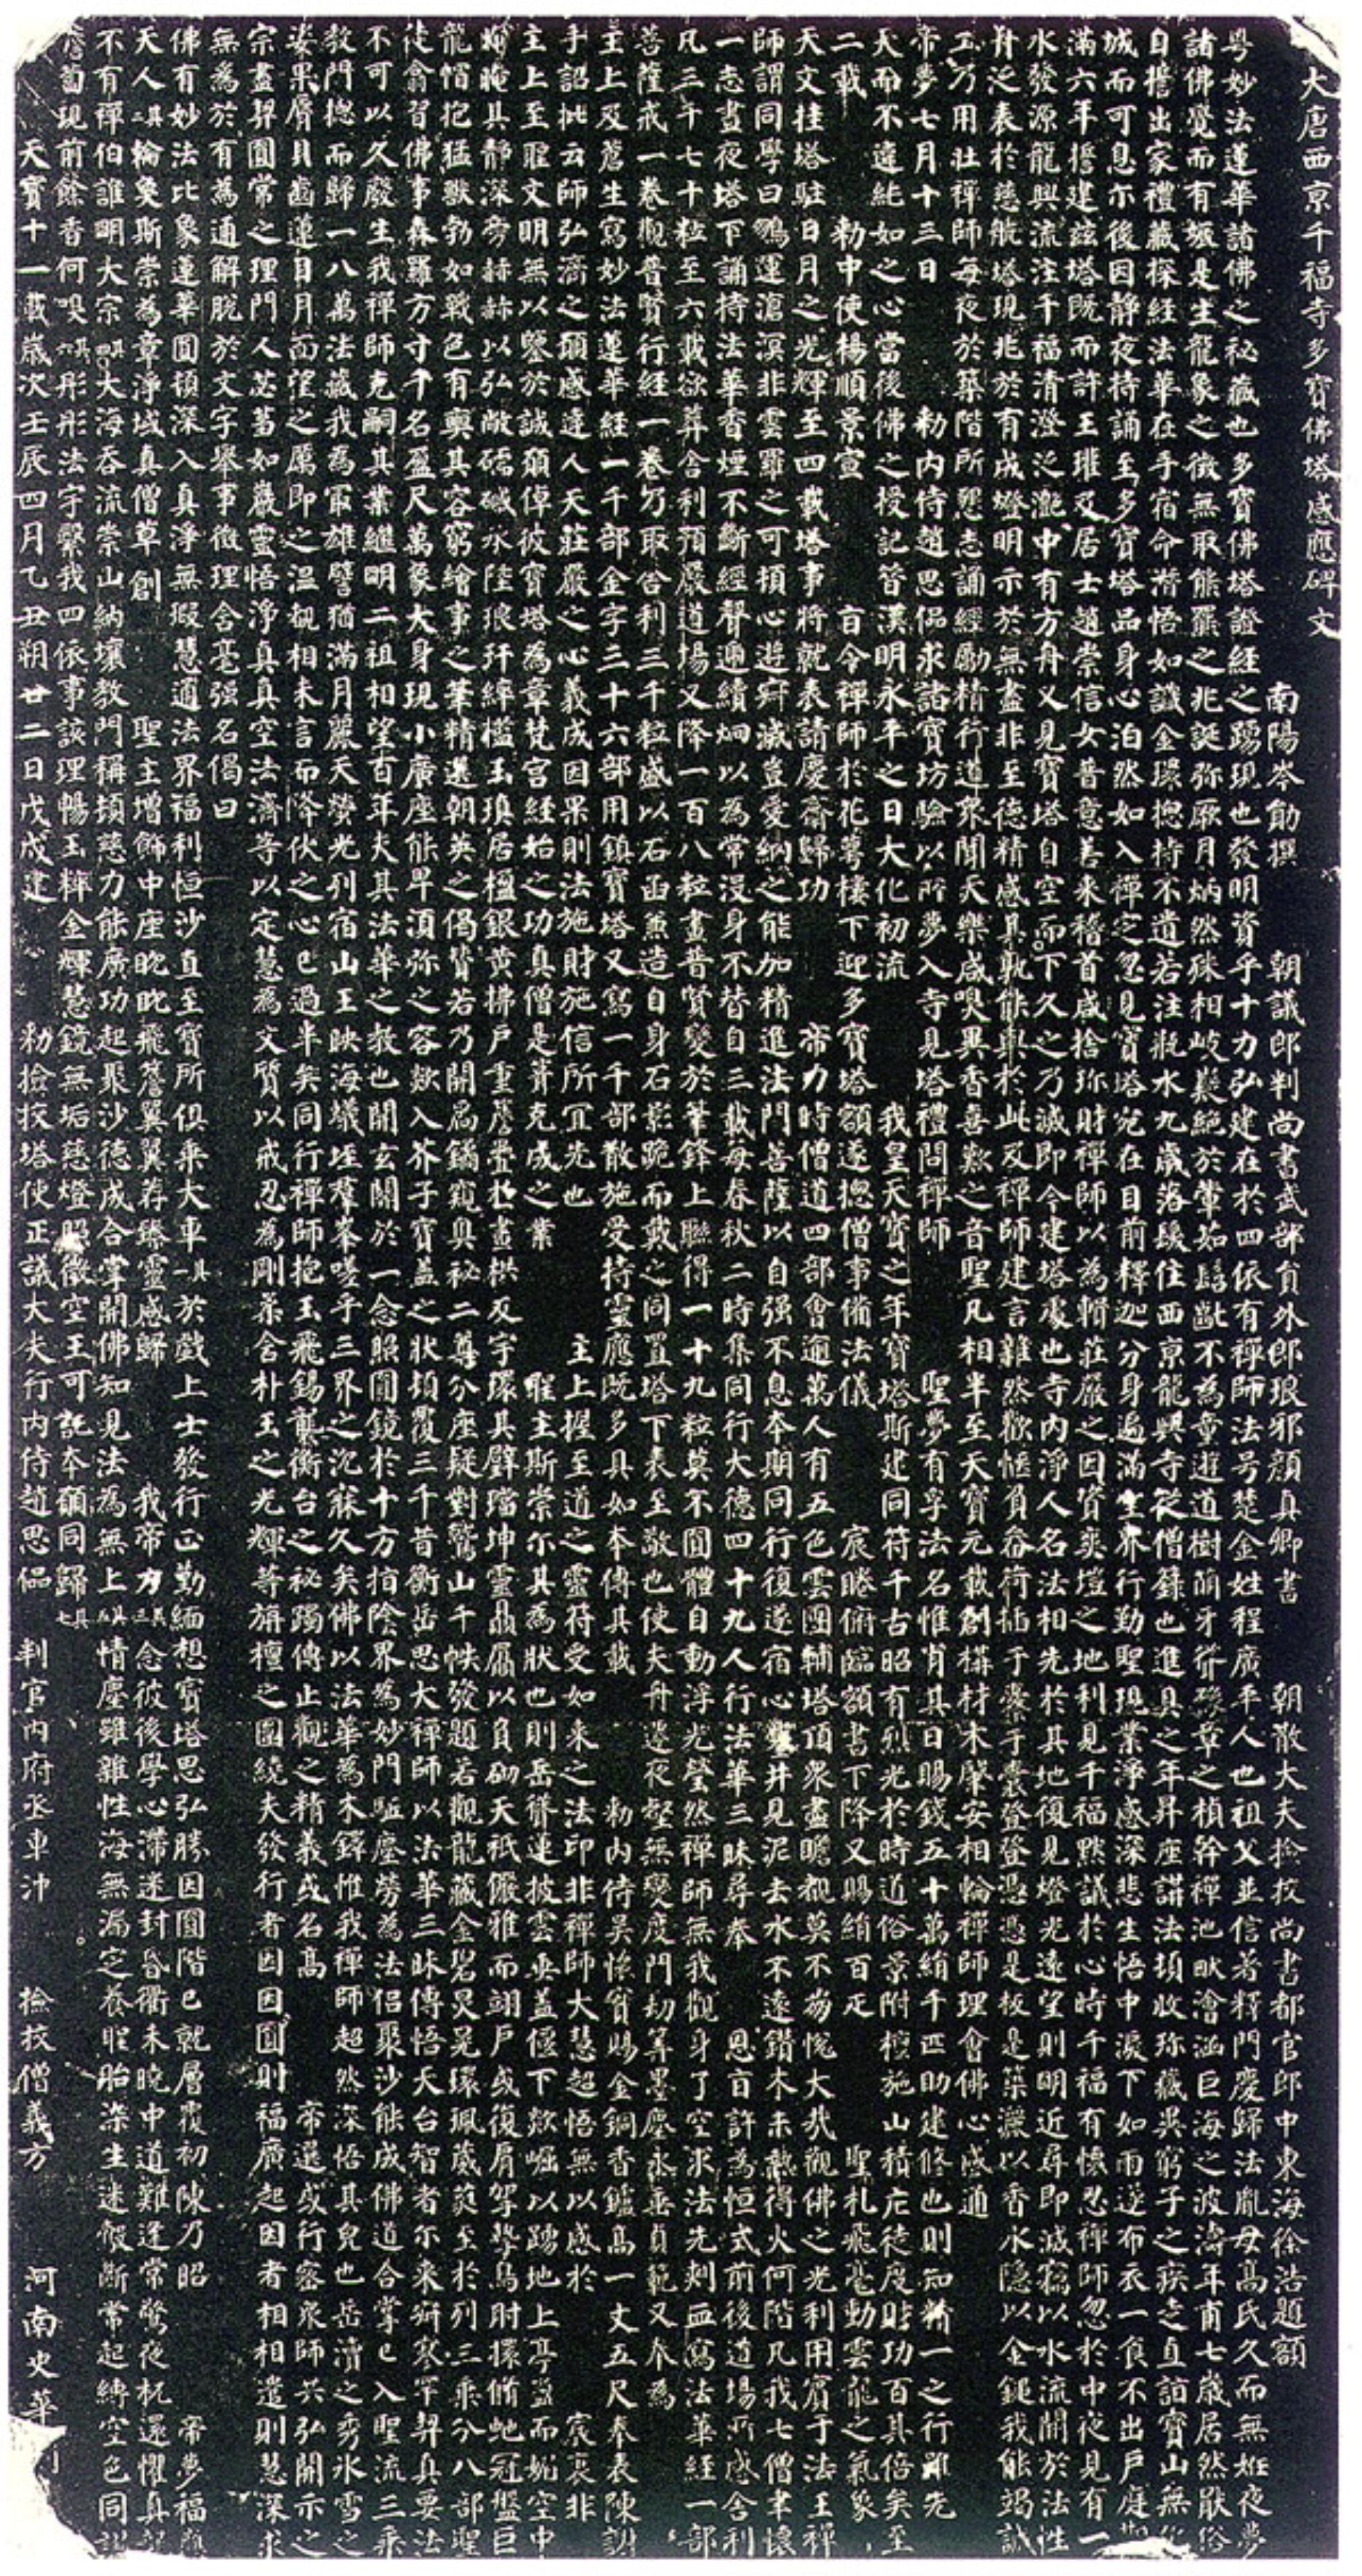 大唐西京千福寺多寶佛塔感應碑文
南陽岑勛撰 朝議郎判尚書武部員外郎琅邪顏真卿書 朝散大夫撿挍尚書都官郎中東海徐浩題額
粵妙法蓮華諸佛之秘藏也多寶佛塔證經之踴現也發明資乎十力弘建在於四依有禪師法号楚金姓程廣平人也祖父並信著釋門慶歸法胤母高氏久而無姙夜夢
諸佛覺而有娠是生龍象之徵無取熊羆之兆誕弥厥月炳然殊相岐嶷絕於葷茹髫齔不為童遊道樹萌牙聳豫章之楨幹禪池畎澮涵巨海之波濤年甫七歲居然厭俗
自誓出家禮藏探經法華在手宿命潛悟如識金環揔持不遺若注瓶水九歲落髮住西京龍興寺從僧籙也進具之年昇座講法頓收珍藏異窮子之疾走直詣寶山無化
城而可息尒後因靜夜持誦至多寶塔品身心泊然如入禪定忽見寶塔宛在目前釋迦分身遍滿空界行勤聖現業淨感深悲生悟中淚下如雨遂布衣一食不出戶庭期
滿六年誓建茲塔既而許王瓘及居士趙崇信女普意善來稽首咸捨珍財禪師以為輯莊嚴之因資爽塏之地利見千福默議於心時千福有懷忍禪師忽於中夜見有一
水發源龍興流注千福清澄泛灔中有方舟又見寶塔自空而下久之乃滅即今建塔處也寺內淨人名法相先於其地復見燈光遠望則明近尋即滅竊以水流開於法性
舟泛表於慈航塔現兆於有成燈明示於無盡非至德精感其孰能與於此及禪師建言雜然歡愜負畚荷插于橐于囊登登憑憑是板是築灑以香水隱以金鎚我能竭誠
工乃用壯禪師每夜於築階所懇志誦經勵精行道眾聞天樂咸嗅異香喜歎之音聖凡相半至天寶元載創構材木肇安相輪禪師理會佛心感通
帝夢七月十三日 勑內侍趙思偘求諸寶坊驗以所夢入寺見塔禮問禪師 聖夢有孚法名惟肖其日賜錢五十萬絹千匹助建修也則知精一之行雖先
天而不違純如之心當後佛之授記昔漢明永平之日大化初流 我皇天寶之年寶塔斯建同符千古昭有烈光於時道俗景附檀施山積庀徒度財功百其倍矣至
二載 勑中使楊順景宣 旨令禪師於花萼樓下迎多寶塔額遂揔僧事備法儀 宸睠俯臨額書下降又賜絹百疋 聖札飛毫動雲龍之氣象
天文挂塔駐日月之光輝至四載塔事將就表請慶齋歸功 帝力時僧道四部會逾萬人有五色雲團輔塔頂眾盡瞻覩莫不崩悅大哉觀佛之光利用賓于法王禪
師謂同學曰鵬運滄溟非雲羅之可頓心遊寂滅豈愛網之能加精進法門菩薩以自强不息本期同行復遂宿心鑿井見泥去水不遠鑽木未熱得火何階凡我七僧聿懷
一志晝夜塔下誦持法華香煙不斷經聲遞續炯以為常沒身不替自三載每春秋二時集同行大德四十九人行法華三昧尋奉 恩旨許為恒式前後道場所感舍利
凡三千七十粒至六載欲葬舍利預嚴道場又降一百八粒畫普賢變於筆鋒上聯得一十九粒莫不圓體自動浮光瑩然禪師無我觀身了空求法先刺血寫法華經一部
菩薩戒一卷觀普賢行經一卷乃取舍利三千粒盛以石函兼造自身石影跪而戴之同置塔下表至敬也使夫舟遷夜壑無變度門劫筭墨塵永垂貞範又奉為
主上及蒼生寫妙法蓮華經一千部金字三十六部用鎮寶塔又寫一千部散施受持靈應既多具如本傳其載 勑內侍吳懷實賜金銅香鑪高一丈五尺奉表陳謝
手詔批云師弘濟之願感達人天莊嚴之心義成因果則法施財施信所宜先也 主上握至道之靈符受如來之法印非禪師大慧超悟無以感於 宸衷非
主上至聖文明無以鑒於誠願倬彼寶塔為章梵宮經始之功真僧是葺克成之業 聖主斯崇尒其為狀也則岳聳蓮披雲垂蓋偃下欻崛以踊地上亭盈而媚空中
晻晻其靜深旁赫赫以弘敞礝磩承陛琅玕綷檻玉瑱居楹銀黃拂戶重簷疊於畫栱反宇環其璧璫坤靈贔屓以負砌天祇儼雅而翊戶或復肩挐摯鳥肘擐脩虵冠盤巨
龍帽抱猛獸勃如戰色有奭其容窮繪事之筆精選朝英之偈贊若乃開扃鐍窺奧秘二尊分座疑對鷲山千帙發題若觀龍藏金碧炅晃環珮葳蕤至於列三乘分八部聖
徒翕習佛事森羅方寸千名盈尺萬象大身現小廣座能卑須弥之容欻入芥子寶蓋之狀頓覆三千昔衡岳思大禪師以法華三昧傳悟天台智者尒來寂寥罕契真要法
不可以久廢生我禪師克嗣其業繼明二祖相望百年夫其法華之教也開玄關於一念照圓鏡於十方指陰界為妙門駈塵勞為法侶聚沙能成佛道合掌已入聖流三乘
教門揔而歸一八萬法藏我為最雄譬猶滿月麗天螢光列宿山王映海蟻垤羣峯嗟乎三界之沉寐久矣佛以法華為木鐸惟我禪師超然深悟其皃也岳瀆之秀冰雪之
姿果脣貝齒蓮目月面望之厲即之溫覩相未言而降伏之心已過半矣同行禪師抱玉飛錫襲衡台之秘躅傳止觀之精義或名高 帝選或行密眾師共弘開示之
宗盡契圓常之理門人苾蒭如巖靈悟淨真真空法濟等以定慧為文質以戒忍為剛柔含朴玉之光輝等旃檀之圍繞夫發行者因因圓則福廣起因者相相遣則慧深求
無為於有為通解脫於文字舉事徵理含毫强名偈曰
佛有妙法比象蓮華圓頓深入真淨無瑕慧通法界福利恒沙直至寶所俱乘大車其一於戲上士發行正勤緬想寶塔思弘勝因圓階已就層覆初陳乃昭 帝夢福應
天人其二輪奐斯崇為章淨域真僧草創 聖主增飾中座耽耽飛簷翼翼荐臻靈感歸 我帝力其三念彼後學心滯迷封昏衢未曉中道難逢常驚夜枕還懼真龍
不有禪伯誰明大宗其四大海吞流崇山納壤教門稱頓慈力能廣功起聚沙德成合掌開佛知見法為無上其五情塵雖雜性海無漏定養聖胎染生迷鷇斷常起縛空色同謬
薝蔔現前餘香何嗅其六彤彤法宇繄我四依事該理暢玉粹金輝慧鏡無垢慈燈照微空王可託本願同歸其七
天寶十一載歲次壬辰四月乙丑朔廿二日戊戌建 勑撿挍塔使正議大夫行內侍趙思偘 判官內府丞車沖 撿挍僧義方 河南史華刻